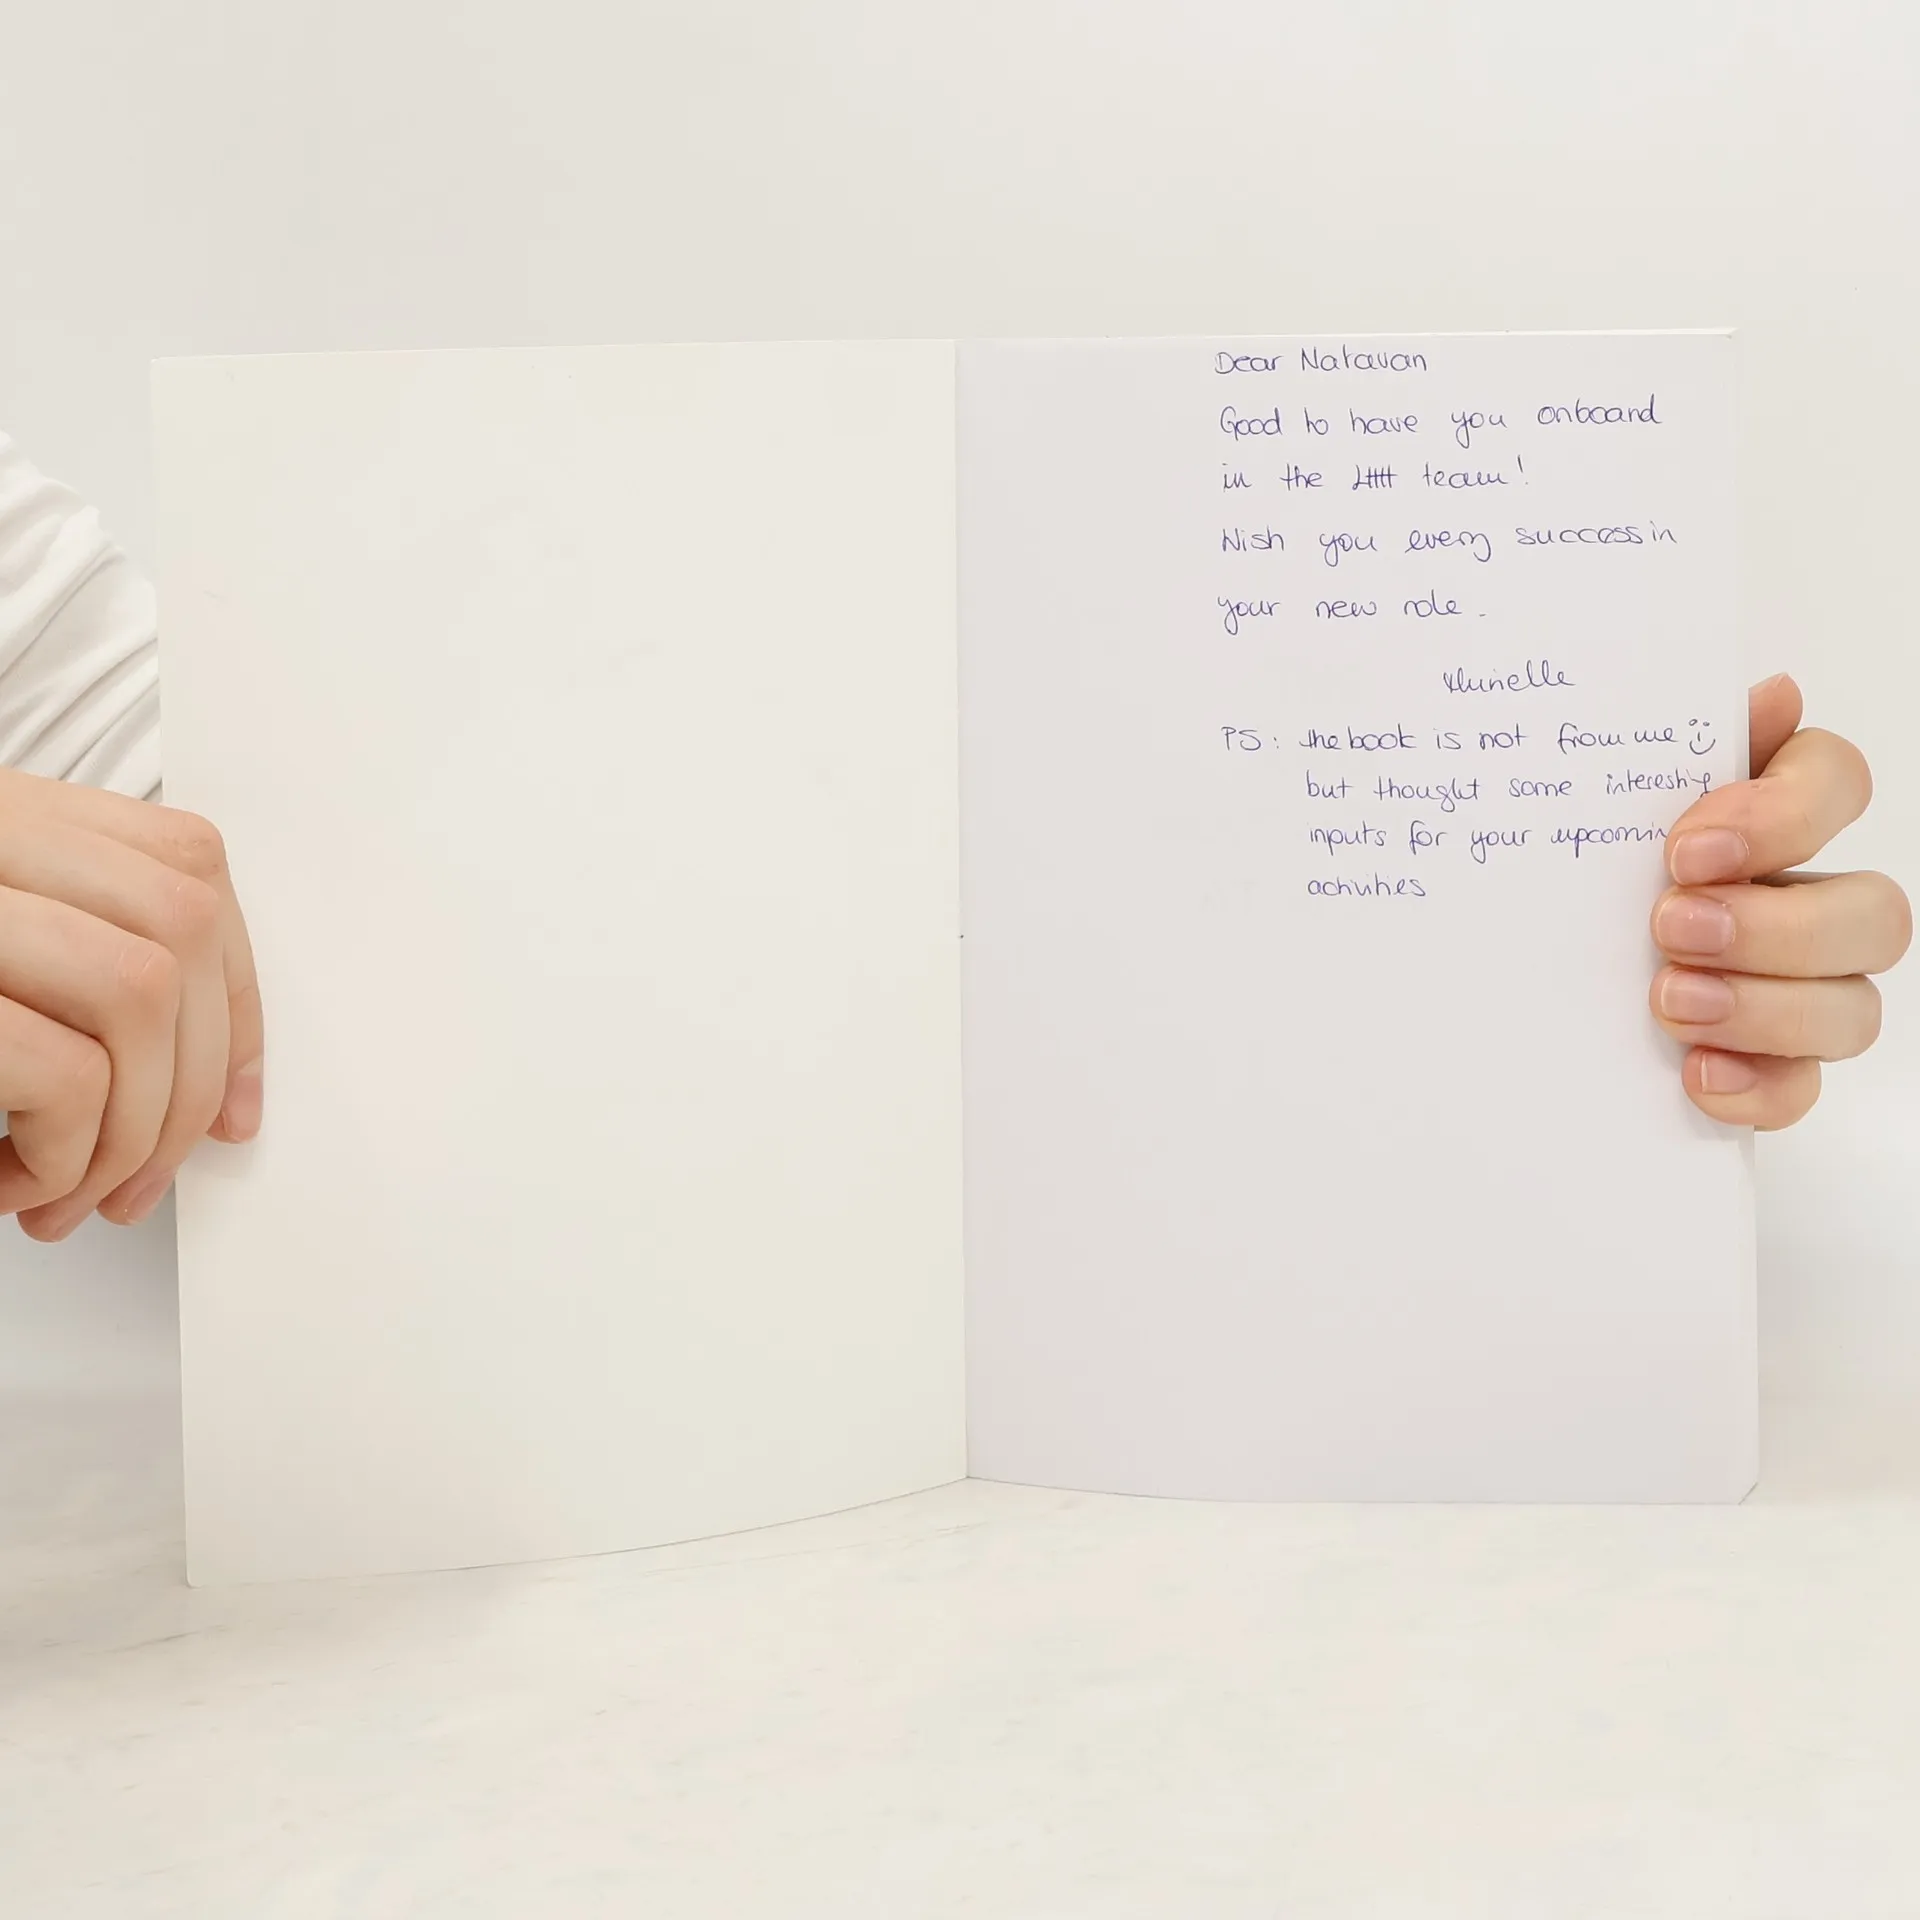 Dear Natavan
Good to have you onboard
in the team!
Wish you every success in
your new role.
Murielle
PS: the book is not from me
but thought some interesting
inputs for your upcomin
activities